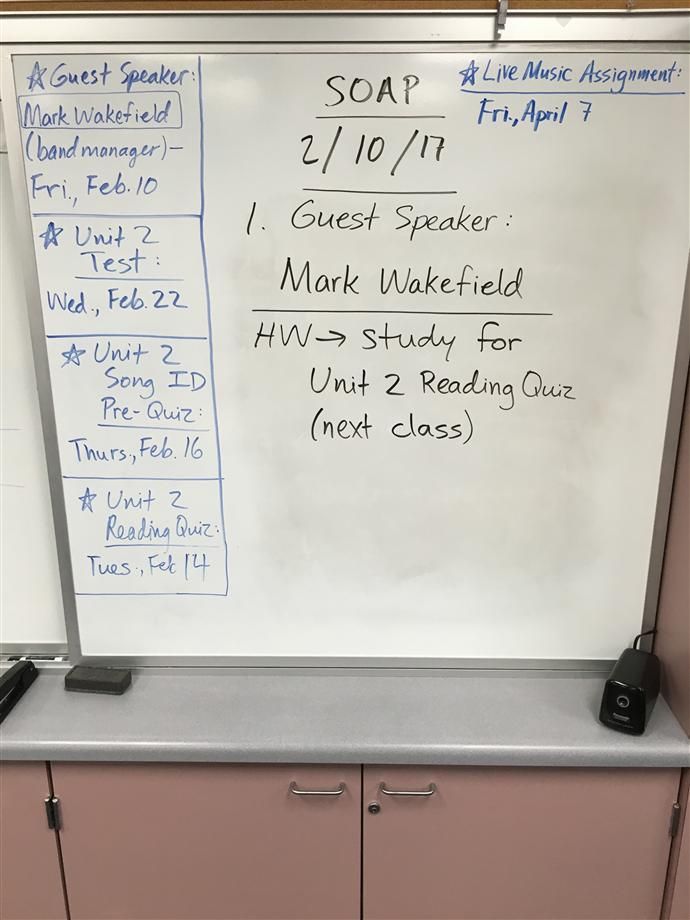 ☆ Guest Speaker:
Mark Wakefield
(band manager)-
Fri., Feb. 10
☆ Unit 2
Test:
Wed., Feb. 22
☆ Unit 2
Song ID
Pre-Quiz:
Thurs., Feb. 16
☆ Unit 2
Reading Quiz:
Tues., Feb 14
SOAP
2/10/17
1. Guest Speaker:
Mark Wakefield
HW → study for
Unit 2 Reading Quiz
(next class)
☆ Live Music Assignment:
Fri., April 7